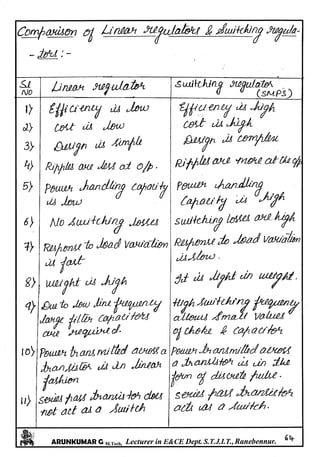 Comparison of Linear regulators & switching regula-
-tors :-
Sl NO
Linear regulator
Switching regulator (SMPS)
1) Efficiency is low
Efficiency is high
2) Cost is low
Cost is high
3) Design is simple
Design is complex
4) Ripples are less at o/p.
Ripples are more at the o/p
5) Power handling capacity
is low
Power handling
Capacity is high
6) No Switching losses
switching losses are high
7) Response to load variation
is fast
Response to load variation
is slow.
8) weight is high
It is light in weight.
9) Due to low line frequency
large filter capacitors
are required.
High Switching frequency
allows small values
of choke & capacitor
10) Power transmitted across a
transistor is in linear
fashion
Power transmitted across
a transistor is in the
form of discrete pulse.
11) series pass transistor does
not act as a switch
series pass transistor
acts as a switch.
ARUNKUMAR G M.Tech, Lecturer in E&CE Dept. S.T.J.I.T., Ranebennur.
64